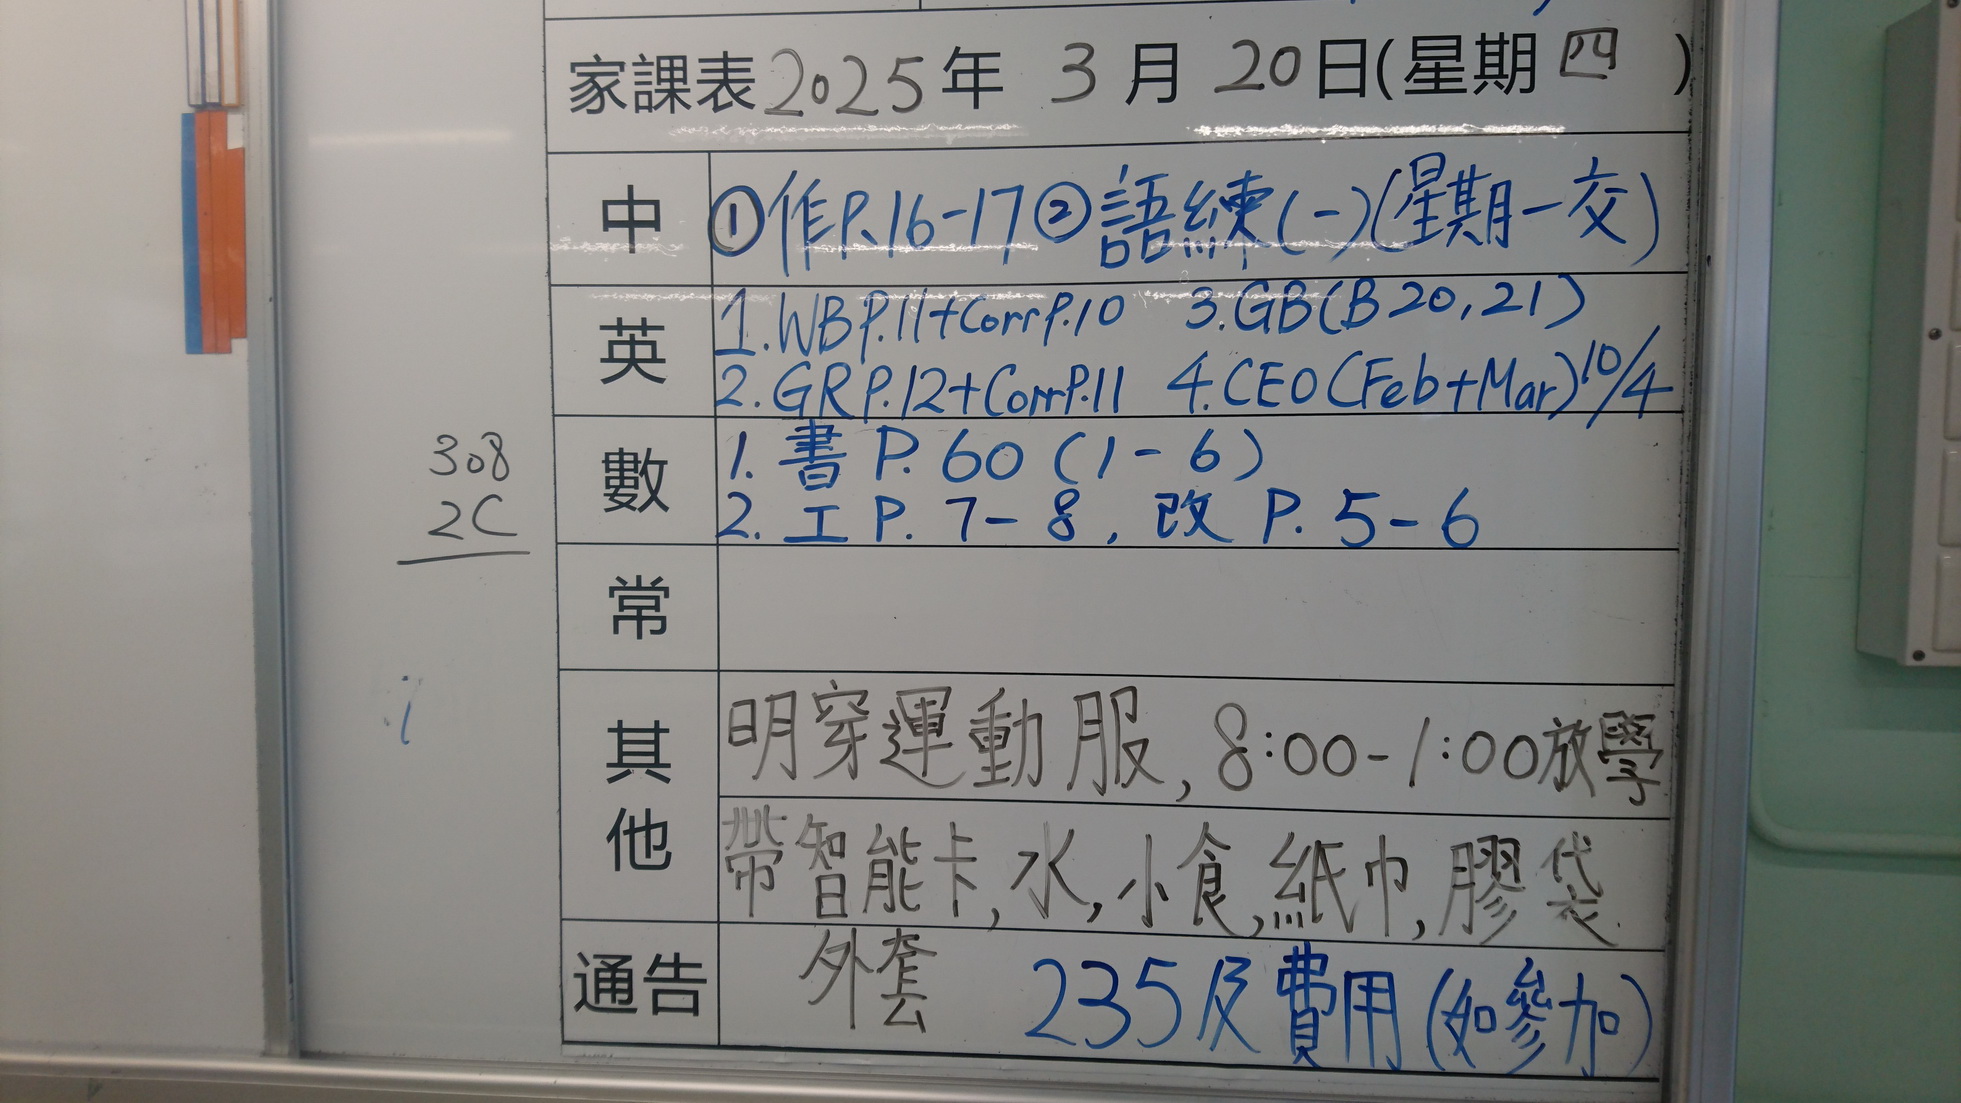 家課表2025年 3月 20日(星期四)
中 ①作P.16-17②語練(一)(星期一交)
英 1.WBP.11+CorrP.10 3.GB(B20,21)
2.GRP.12+CorrP.11 4.CEO(Feb+Mar)10/4
數 1.書P.60(1-6)
2.工P.7-8,改P.5-6
308
2C
常
其他 明穿運動服,8:00-1:00放學
帶智能卡,水,小食,紙巾,膠袋
通告 外套 235及費用(如參加)